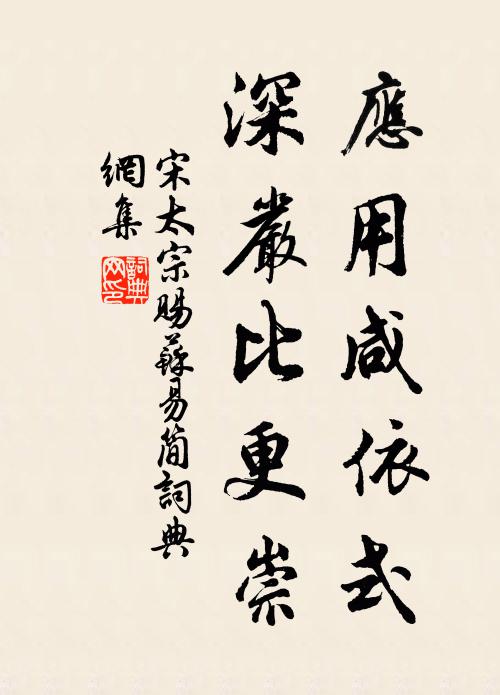 應用咸依式
深嚴比更崇
宋太宗賜蘇易簡詞典
網集
詞典
網印